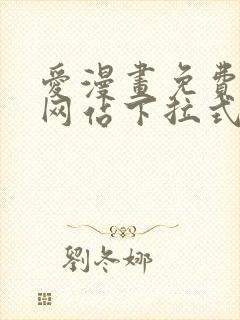 愛漫畫免費
网站下拉式
劉冬娜